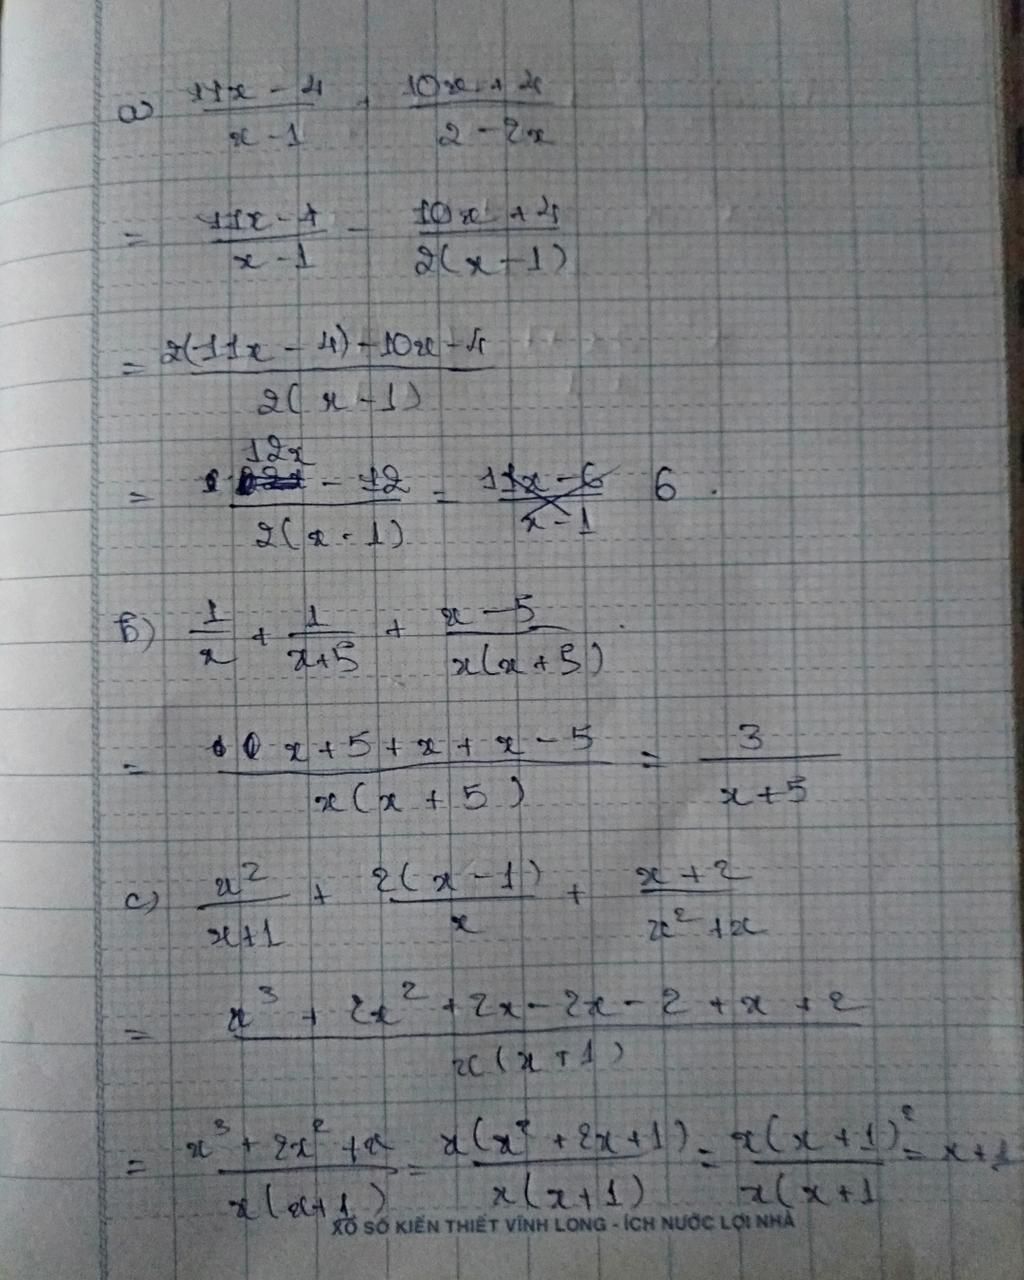 a) (11x - 4)/(x - 1) + (10x + 4)/(2 - 2x)
= (11x - 4)/(x - 1) - (10x + 4)/(2(x - 1))
= (2(11x - 4) - 10x - 4)/(2(x - 1))
= (12x - 12)/(2(x - 1)) = 6.
b) 1/x + 1/(x+5) + (x - 5)/(x(x + 5)).
= (x + 5 + x + x - 5)/(x(x + 5)) = 3/(x + 5)
c) x²/(x+1) + 2(x - 1)/x + (x + 2)/(x² + x)
= (x³ + 2x² + 2x - 2x - 2 + x + 2)/(x(x + 1))
= (x³ + 2x² + x)/(x(x+1)) = x(x² + 2x + 1)/(x(x + 1)) = x(x + 1)²/(x(x + 1) = x + 1
XỔ SỐ KIẾN THIẾT VĨNH LONG - ÍCH NƯỚC LỢI NHÀ